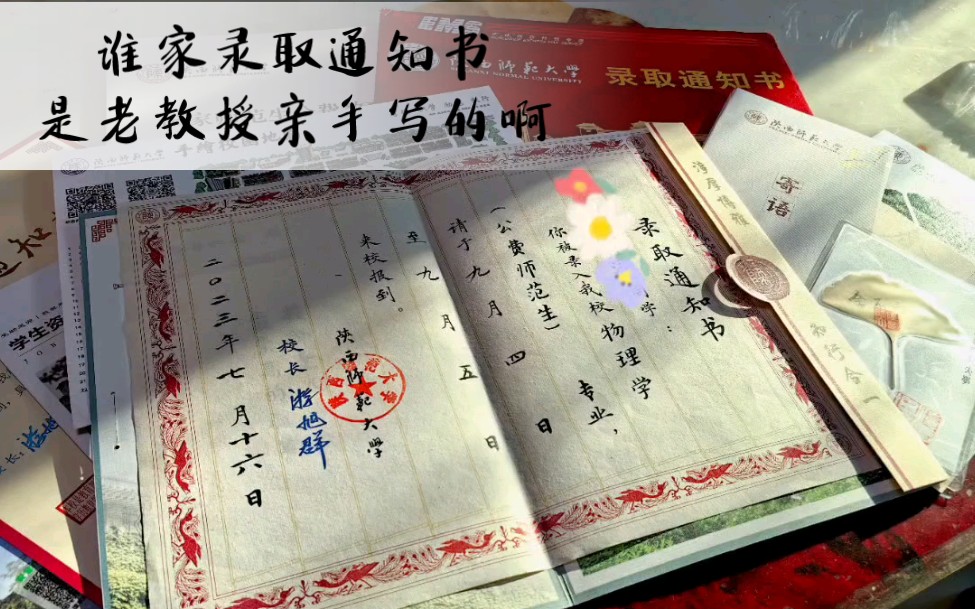 谁家录取通知书
是老教授亲手写的啊
EMS
陕西师范大学
SHAANXI NORMAL UNIVERSITY
录取通知书
陕西师范大学
寄语
淳厚博雅
知行合一
录取通知书
学：
你被录入我校物理学专业，
（公费师范生）
请于九月四日
至九月五日
来校报到。
陕西师范大学
校长 游旭群
二〇二三年七月十六日
学生资